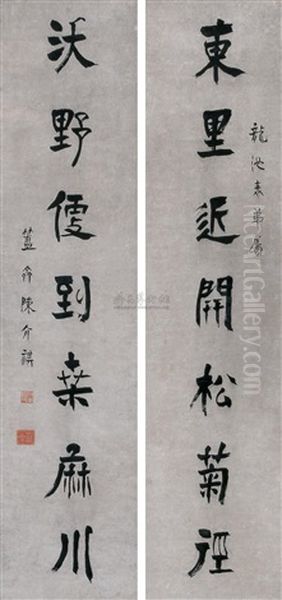 東里近開松菊徑
龍池表弟屬
沃野便到桑麻川
簠齋陳介祺